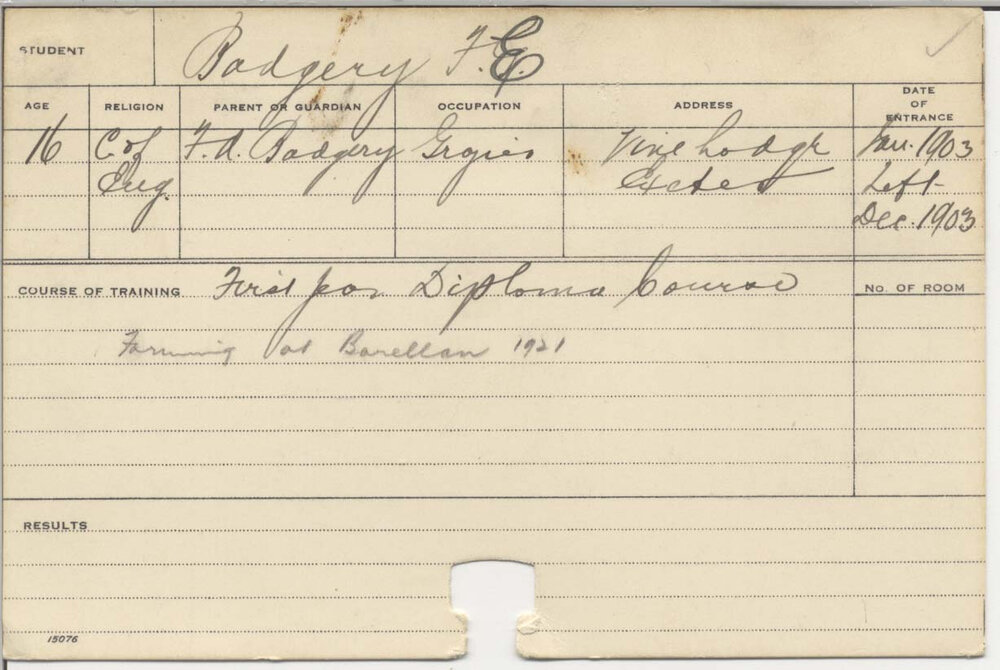 STUDENT Badgery F.E.
AGE RELIGION PARENT OR GUARDIAN OCCUPATION ADDRESS DATE OF ENTRANCE
16 C. of F. A. Badgery Grazier Vine Lodge Jan. 1903
Eng. Exeter Left
Dec. 1903
COURSE OF TRAINING First year Diploma Course No. OF ROOM
Farming at Barellan 1921
RESULTS
15076